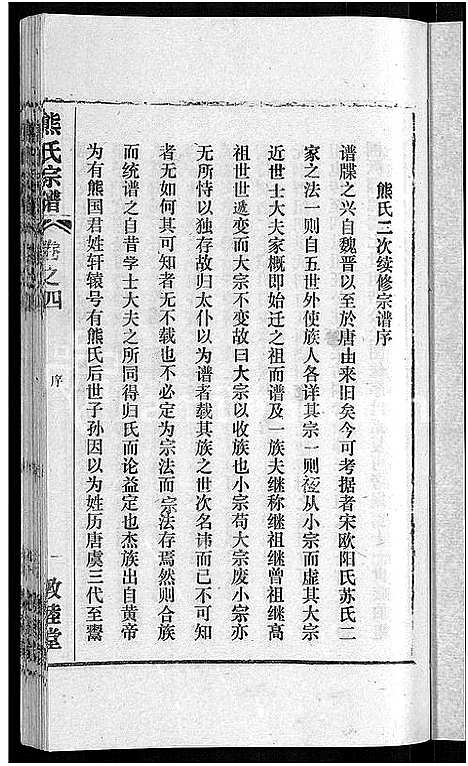 熊氏二次续修宗谱序
谱牒之兴自魏晋以至於唐由来旧矣今可考据者宋欧阳氏苏氏二
家之法一则自五世外使族人各详其宗一则从小宗而虚其大宗
近世士大夫家概即始迁之祖而谱及一族夫继称继祖继曾祖继高
祖世世递变而大宗不变故曰大宗以收族也小宗苟大宗废小宗亦
无所恃以独存故归太仆以为谱者载其族之世次名讳而已其不可知
者无如何其可知者无不载也不必定为宗法而宗法存焉然则合族
而统谱之自昔学士大夫之所同得归氏而论益定也杰族出自黄帝
为有熊国君姓轩辕号有熊氏后世子孙因以为姓历唐虞三代至鬻
熊氏宗谱
卷之四
序
一
敦睦堂